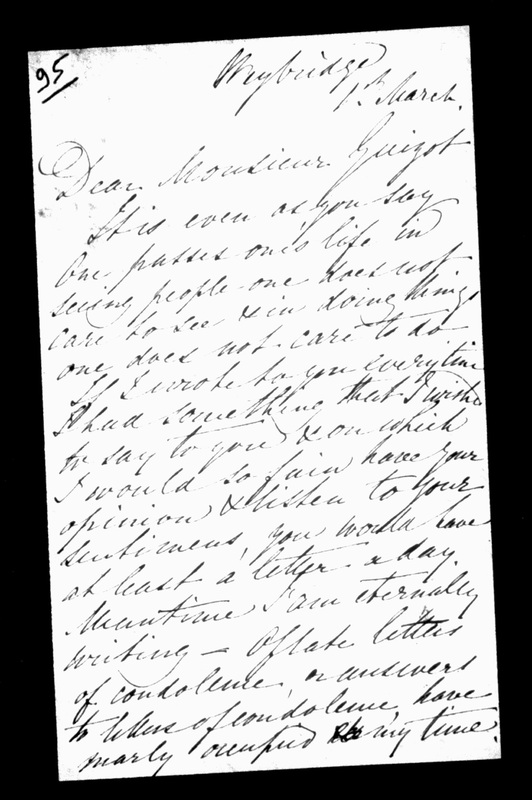 95
Weybridge
1st March.
Dear Monsieur Guizot
It is even as you say
One passes one's life in
seeing people one does not
care to see & in doing things
one does not care to do
If I wrote to you every time
I had something that I wish
to say to you & on which
I would so fain have your
opinion & listen to your
sentimens, you would have
at least a letter a day.
Meantime I am eternally
writing — Of late letters
of condolence, or answers
to letters of condolence, have
nearly occupied my time.